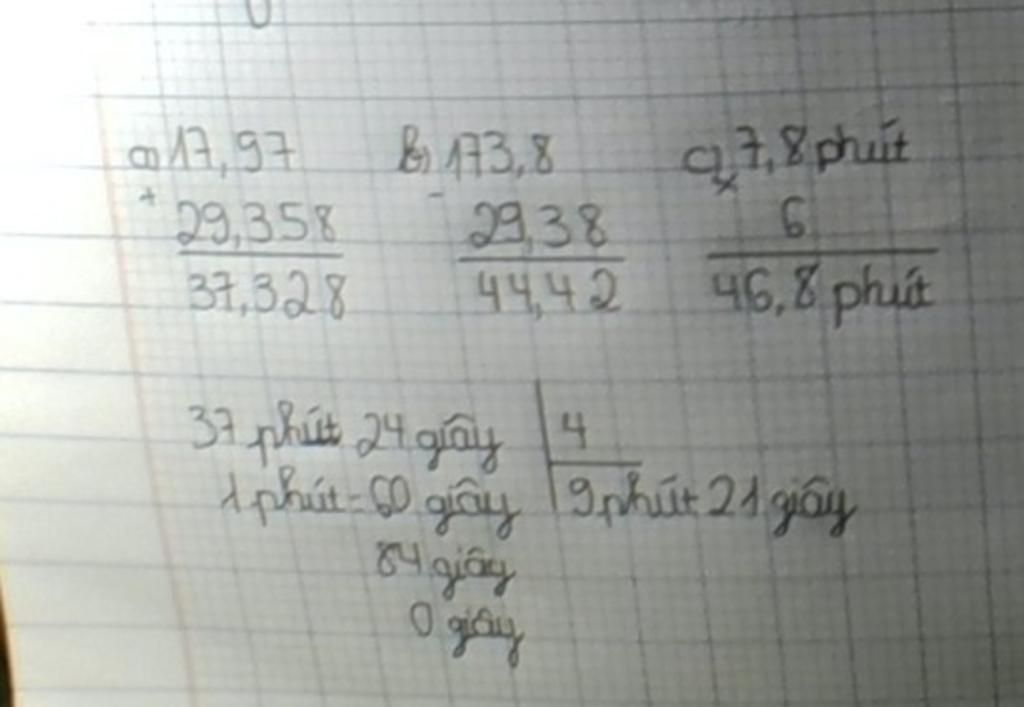 a) 17,97 b) 173,8 c) 7,8 phút
+ - x
29,358 29,38 6
37,328 44,42 46,8 phút
37 phút 24 giây 4
1 phút = 60 giây 9 phút 21 giây
84 giây
0 giây